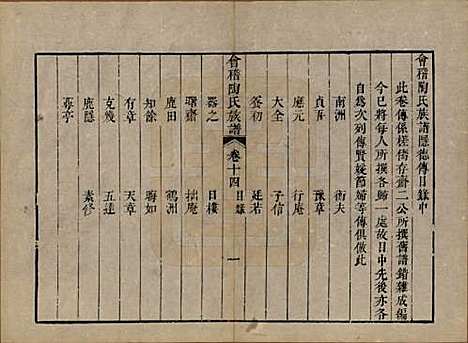 會稽陶氏族譜隱德傳目錄中
此卷傳係槎儔存齋二公所撰舊譜錯雜成編
今已將每人所撰各歸一處故目中先後亦各
自爲次列傳賢媛節婦等傳俱倣此
南洲 衡夫
貞吾 豫章
應元 行庵
大全 子信
養初 廷若
會稽陶氏族譜 卷十四 目錄 一
器之 日樓
曙齋 拙庵
鹿田 鶴洲
知餘 聲如
有章 天章
克幾 五連
鹿隱 素修
尊亭